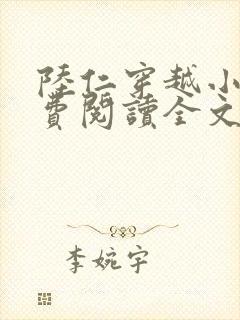 陸仁穿越小
費閱讀全文
李婉宇